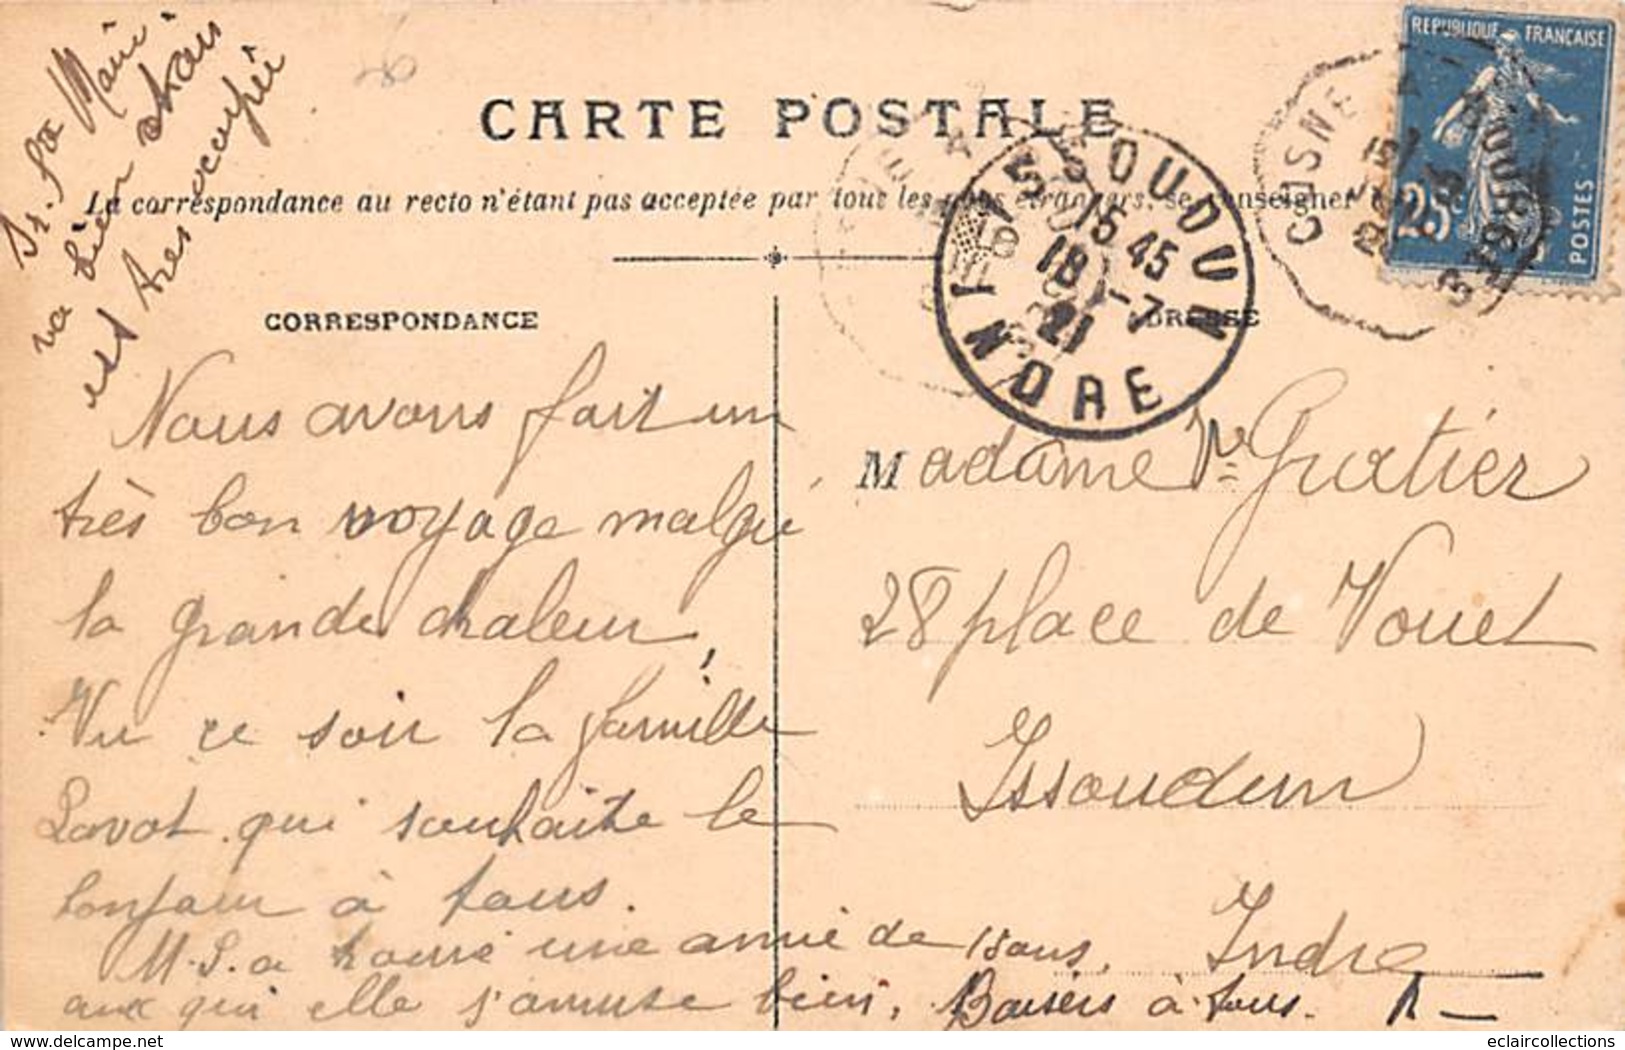 va bien mais
est très occupée
CARTE POSTALE
La correspondance au recto n'étant pas acceptée par tous les pays étrangers, se renseigner
CORRESPONDANCE
ADRESSE
ISSOUDUN
15 45
18 -7
21
INDRE
COSNE A BOURGES
REPUBLIQUE FRANÇAISE
25c
POSTES
Nous avons fait un
très bon voyage malgré
la grande chaleur,
Vu ce soir la famille
Lavot qui souhaite le
bonjour à tous.
M.L. a trouvé une amie de 15 ans,
aux qui elle s'amuse bien, Baisers à tous.
Madame Ve
28 place de Vouet
Issoudun
Indre
eclaircollections